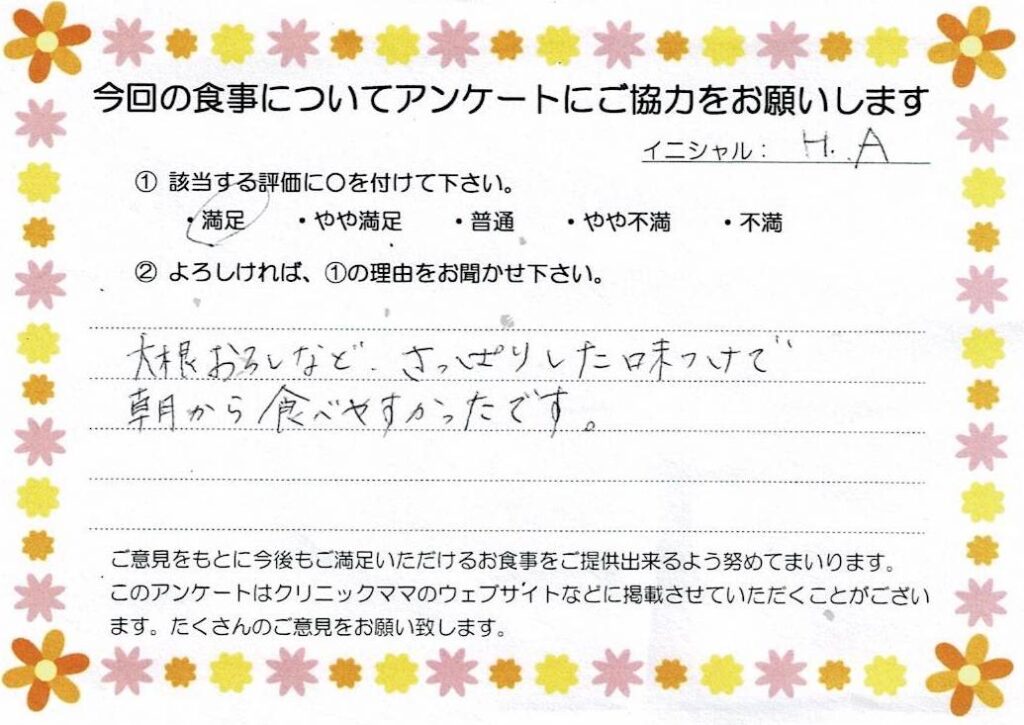 今回の食事についてアンケートにご協力をお願いします
イニシャル： H.A
① 該当する評価に〇を付けて下さい。
・満足 ・やや満足 ・普通 ・やや不満 ・不満
② よろしければ、①の理由をお聞かせ下さい。
大根おろしなど、さっぱりした味つけで
朝から食べやすかったです。
ご意見をもとに今後もご満足いただけるお食事をご提供出来るよう努めてまいります。
このアンケートはクリニックママのウェブサイトなどに掲載させていただくことがござい
ます。たくさんのご意見をお願い致します。